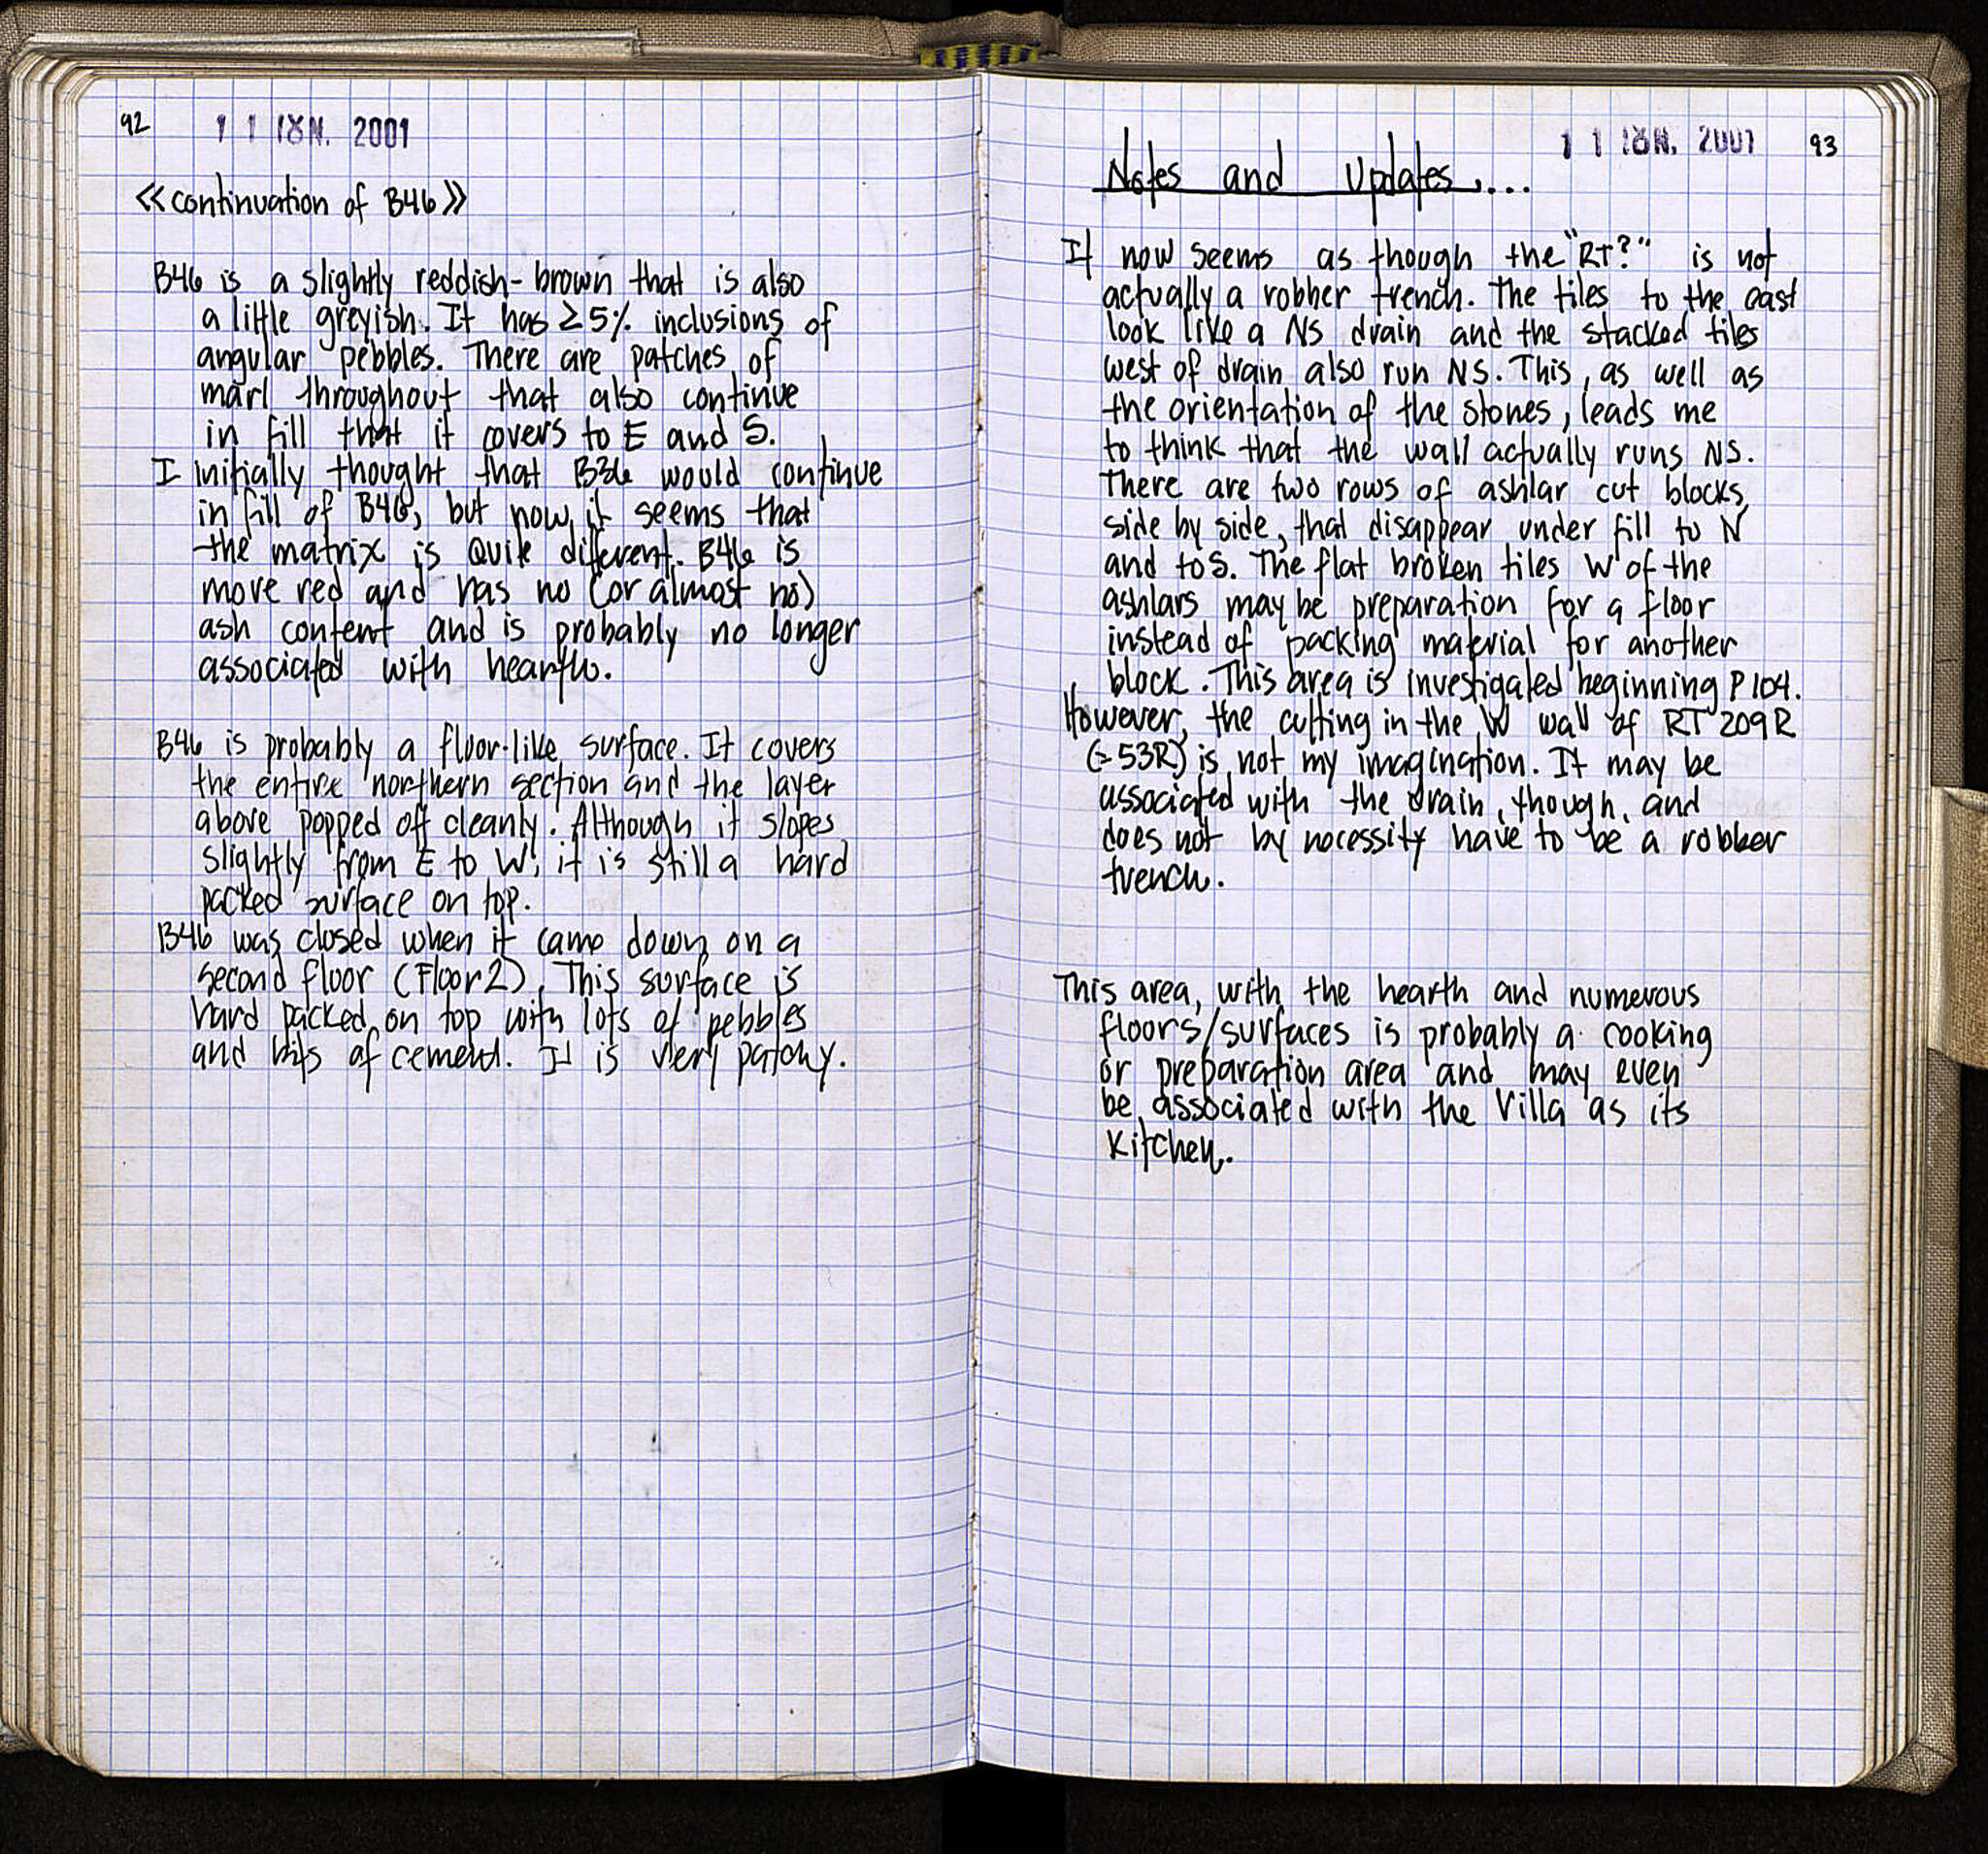 92
11 ΙΟΥΝ. 2001
<<continuation of B46>>
B46 is a slightly reddish-brown that is also
a little greyish. It has ≥5% inclusions of
angular pebbles. There are patches of
marl throughout that also continue
in fill that it covers to E and S.
I initially thought that B36 would continue
in fill of B46, but now it seems that
the matrix is quite different. B46 is
more red and has no (or almost no)
ash content and is probably no longer
associated with hearth.
B46 is probably a floor-like surface. It covers
the entire northern section and the layer
above popped off cleanly. Although it slopes
slightly from E to W, it is still a hard
packed surface on top.
B46 was closed when it came down on a
second floor (Floor 2). This surface is
hard packed on top with lots of pebbles
and bits of cement. It is very patchy.
11 ΙΟΥΝ. 2001
93
Notes and Updates....
It now seems as though the "RT?" is not
actually a robber trench. The tiles to the east
look like a NS drain and the stacked tiles
west of drain also run NS. This, as well as
the orientation of the stones, leads me
to think that the wall actually runs NS.
There are two rows of ashlar cut blocks,
side by side, that disappear under fill to N
and to S. The flat broken tiles W of the
ashlars may be preparation for a floor
instead of packing material for another
block. This area is investigated beginning P 104.
However, the cutting in the W wall of RT 209R
(=53R) is not my imagination. It may be
associated with the drain, though, and
does not by necessity have to be a robber
trench.
This area, with the hearth and numerous
floors/surfaces is probably a cooking
or preparation area and may even
be associated with the Villa as its
kitchen.